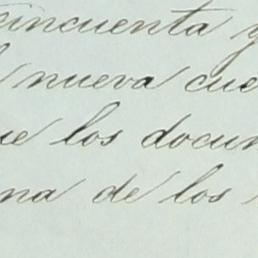 cincuenta y
nueva cue
ue los docum
na de los